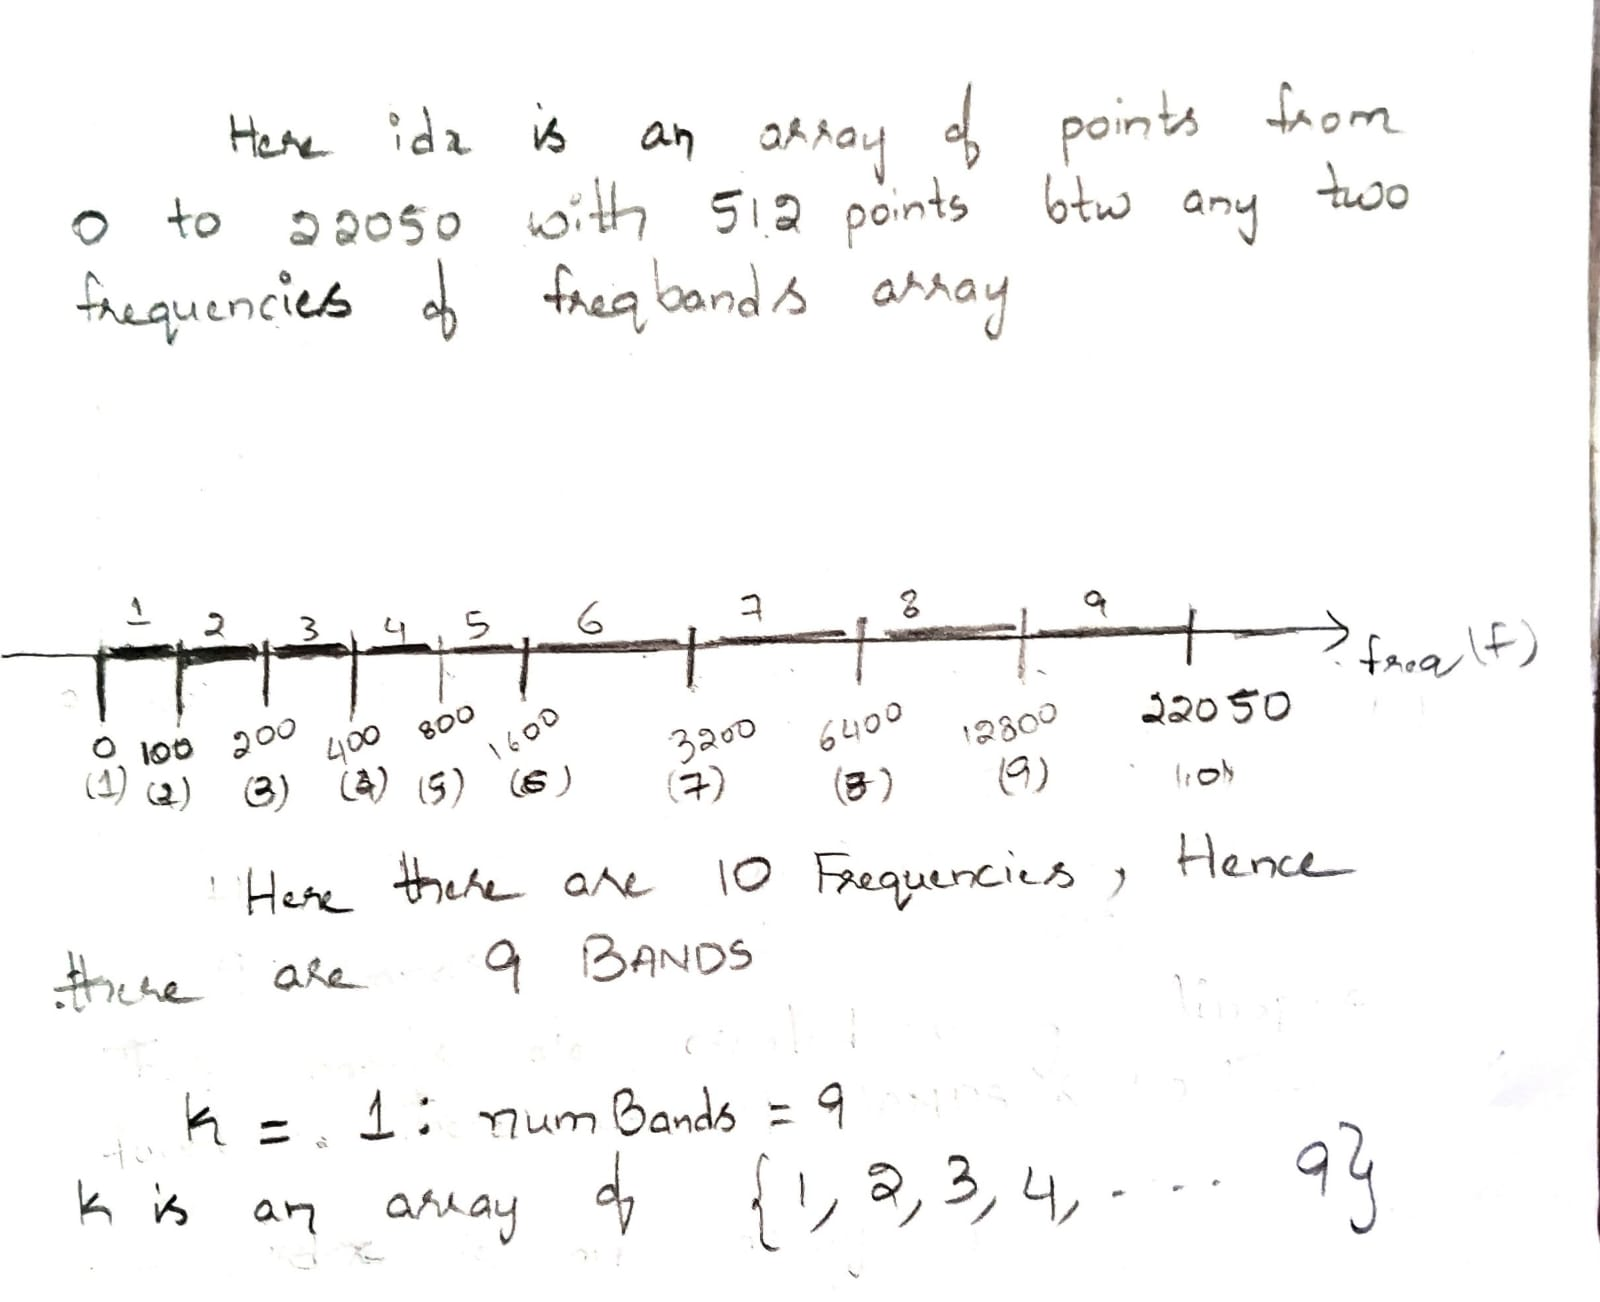 Here idx is an array of points from
0 to 22050 with 512 points btw any two
frequencies of freqbands array
1 2 3 4 5 6 7 8 9
freq (f)
0 100 200 400 800 1600 3200 6400 12800 22050
(1) (2) (3) (4) (5) (6) (7) (8) (9) (10)
Here there are 10 Frequencies, Hence
there are 9 BANDS
k = 1: numBands = 9
k is an array of {1, 2, 3, 4, .... 9}